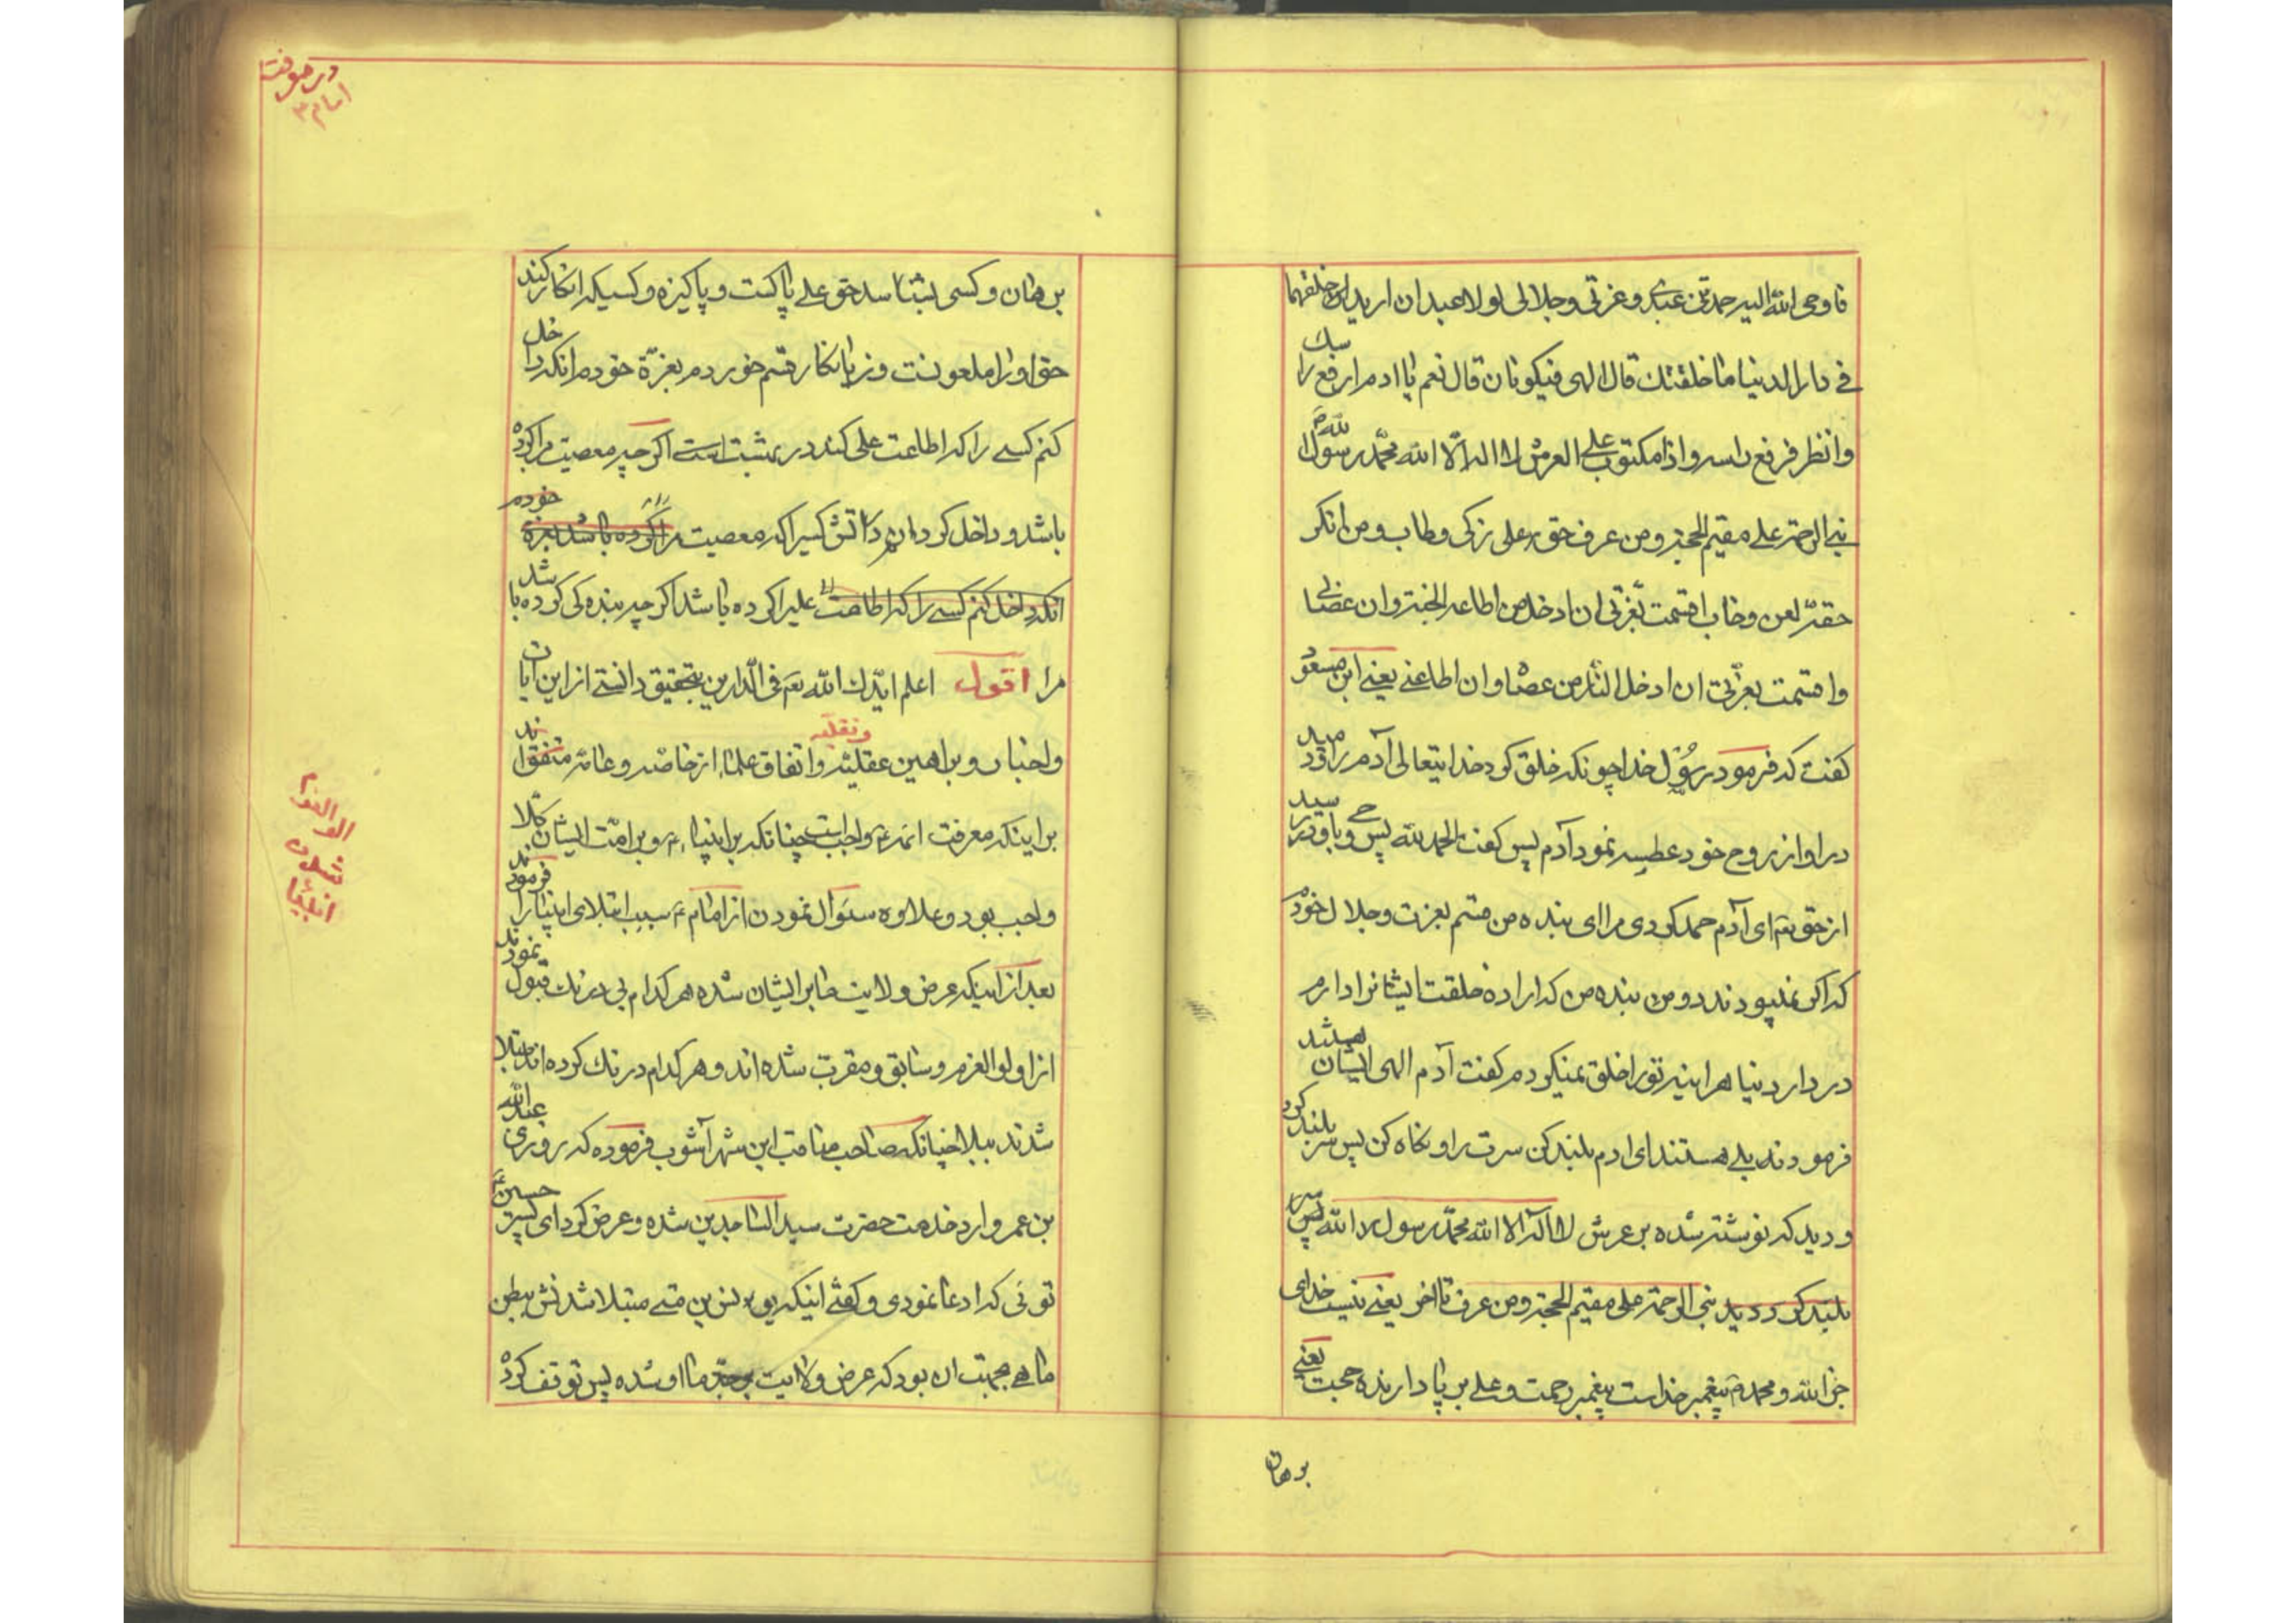 فاوحی الله الیه حمدتنی عبدی وعزتی وجلالی لولا عبدان ارید ان خلقهما
فی دار الدنیا ما خلقتک قال الهی فیکونان قال نعم یا ادم ارفع راسک
وانظر فرفع راسه واذا مکتوب علی العرش لا اله الا الله محمد رسول الله ص
نبی الرحمة علی مقیم الحجة ومن عرف حق علی زکی وطاب ومن انکر
حقه لعن وخاب اقسمت بعزتی ان ادخل من اطاعه الجنة وان عصانی
واقسمت بعزتی ان ادخل النار من عصاه وان اطاعنی یعنی ابن مسعود
کفت که فرمود رسول خدا چونکه خلق کرد خدایتعالی آدم را ودمید
در او از روح خود عطسه نمود آدم پس کفت الحمد لله پس وحی باو رسید
از حق تعه ای آدم حمد کردی مرا ای بنده من قسم بعزت وجلال خودم
که اکر نمیبودند دو من بنده من که اراده خلقت ایشانرا دارم
در دار دنیا هراینه تورا خلق نمیکردم کفت آدم الهی ایشان هستند
فرمودند بلی هستند ای ادم بلند کن سرت را ونکاه کن پس سر بلند کرد
ودید که نوشته شده بر عرش لا اله الا الله محمد رسول الله پس سر
بلند کرد ودید نبی الرحمة علی مقیم الحجة ومن عرف تا اخر یعنی نیست خدای
جز الله ومحمد ص پیغمبر خداست پیغمبر رحمت وعلی بر پا دارنده حجت یعنی
برهان
در معرفت
امام ۳
برهان وکسی بشناسد حق علی پاکست وپاکیزه وکسیکه انکار کند
حق اورا ملعونست وزیانکار قسم خوردم بعزة خودم انکه داخل
کنم کسی را که اطاعت علی کند در بهشت است اکر چه معصیت مرا کرده
باشد وداخل کردانم در اتش کسیرا که معصیت مرا کرده باشد بعزة خودم
انکه داخل کنم کسی را که اطاعت علیرا کرده باشد اکر چه بنده کی کرده باشد
مرا اقول اعلم ایدک الله تعه فی الدارین بتحقیق دانستی از این ایات
واخبار وبراهین عقلیه ونقلیه واتفاق علما از خاصه وعامه متفقند
بر اینکه معرفت ائمه ع واجب است چنانکه بر انبیا ع وبر امت ایشان کلا
واجب بود وعلاوه سئوال نمودن از امام ع سبب ابتلای انبیا را فرمودند
بعد از اینکه عرض ولایت ما بر ایشان شده هر کدام بی درنک قبول نمودند
از اولو العزم وسابق ومقرب شده اند وهر کدام درنک کرده اند مبتلا
شدند ببلا چنانکه صاحب مناقب ابن شهر آشوب فرموده که روزی عبد الله
بن عمر وارد خدمت حضرت سید الساجدین شده وعرض کرد ای پسر حسین ع
توئی که ادعا نمودی وکفتی اینکه یونس بن متی مبتلا شدنش ببطن
ماهی بجهت ان بود که عرض ولایت جد ما باو شده پس توقف کرده
الو العزم
شدن
انبیا